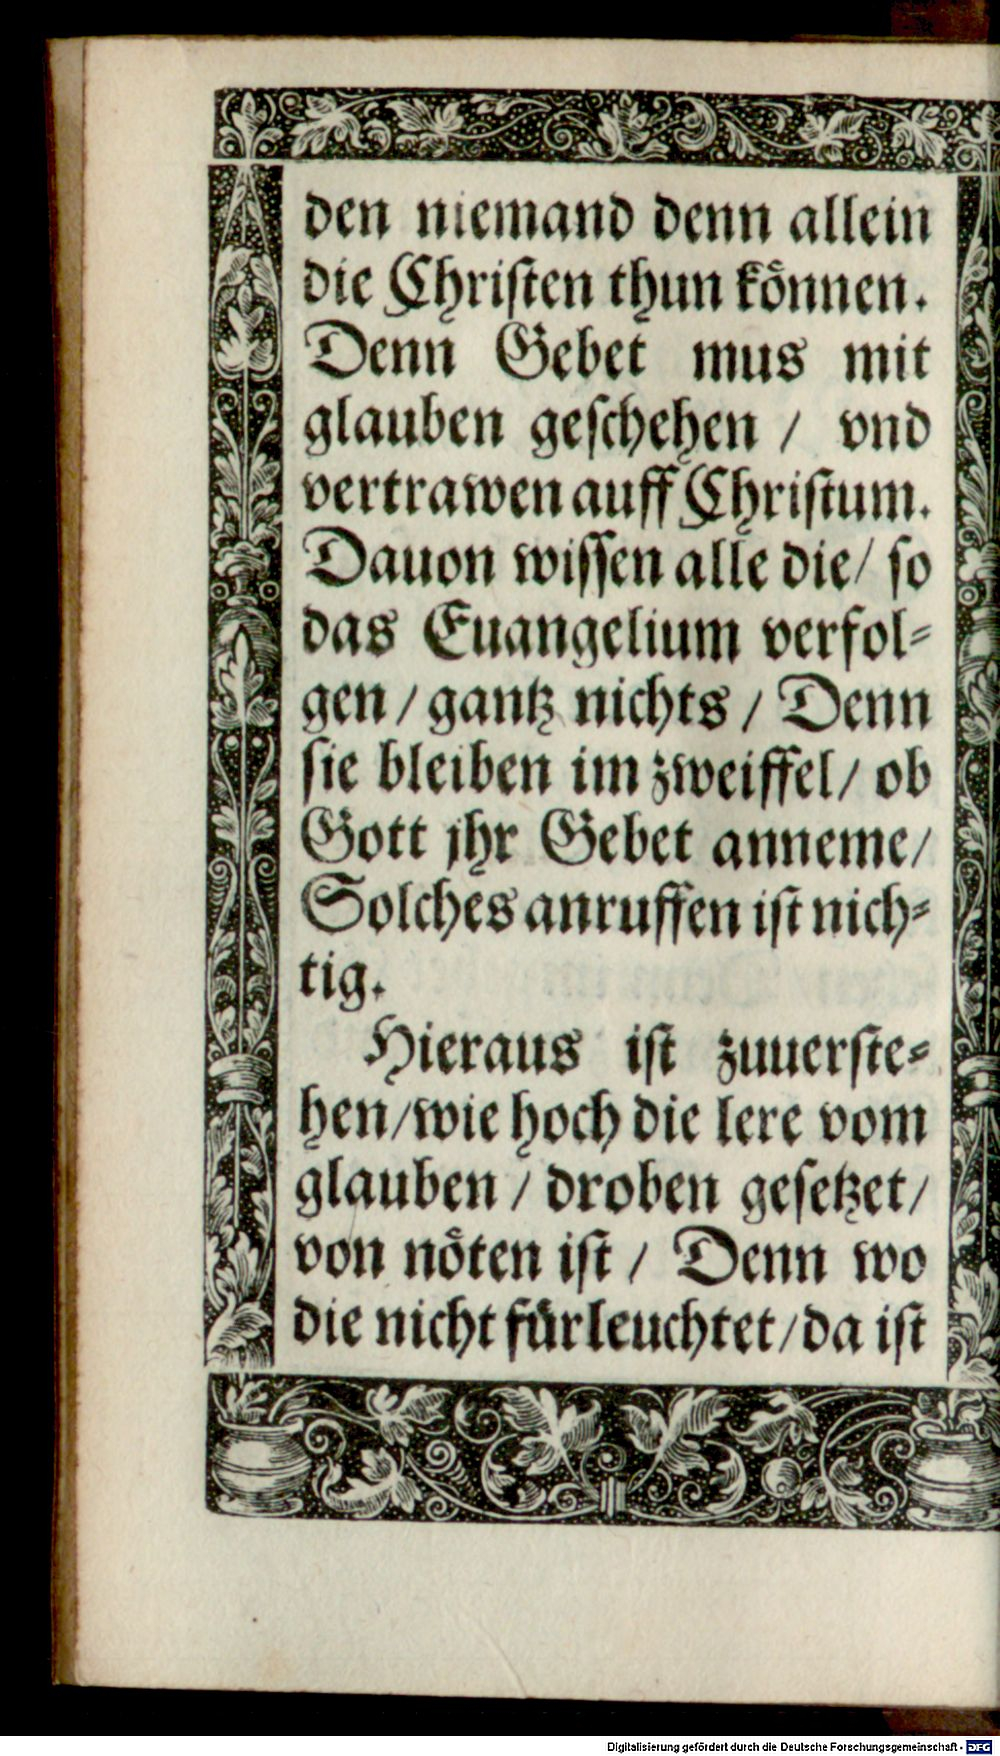 den niemand denn allein
die Chriſten thun koͤnnen.
Denn Gebet mus mit
glauben geſchehen / vnd
vertrawen auff Chriſtum.
Dauon wiſſen alle die/ ſo
das Euangelium verfol⸗
gen / gantz nichts / Denn
ſie bleiben im zweiffel/ ob
Gott jhr Gebet anneme/
Solches anruffen iſt nich⸗
tig.
Hieraus iſt zuuerſte⸗
hen/wie hoch die lere vom
glauben / droben geſetzet/
von noͤten iſt / Denn wo
die nicht fuͤrleuchtet/da iſt
Digitalisierung gefördert durch die Deutsche Forschungsgemeinschaft - DFG